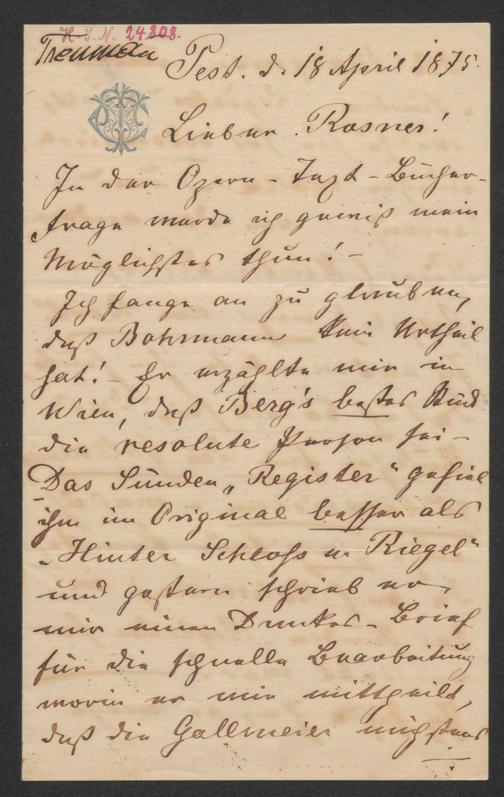 H. I. N. 24808.
Treuman
Pest. d. 18 April 1875.
Lieber Rosner!
In der Opern-Text-Bücher-
frage werde ich gewiß mein
Möglichstes thun! -
Ich fange an zu glauben,
daß Bohrmann kein Urtheil
hat! - Er erzählte mir in
Wien, daß Berg's bestes Stück
die resolute Person sei -
Das Sünden „Register" gefiel
ihm im Original besser als
„Hinter Schloß u Riegel"
und gestern schrieb er
mir einen Dankes-Brief
für die schnelle Bearbeitung
worin er mir mittheilt,
daß die Gallmeier nächstens